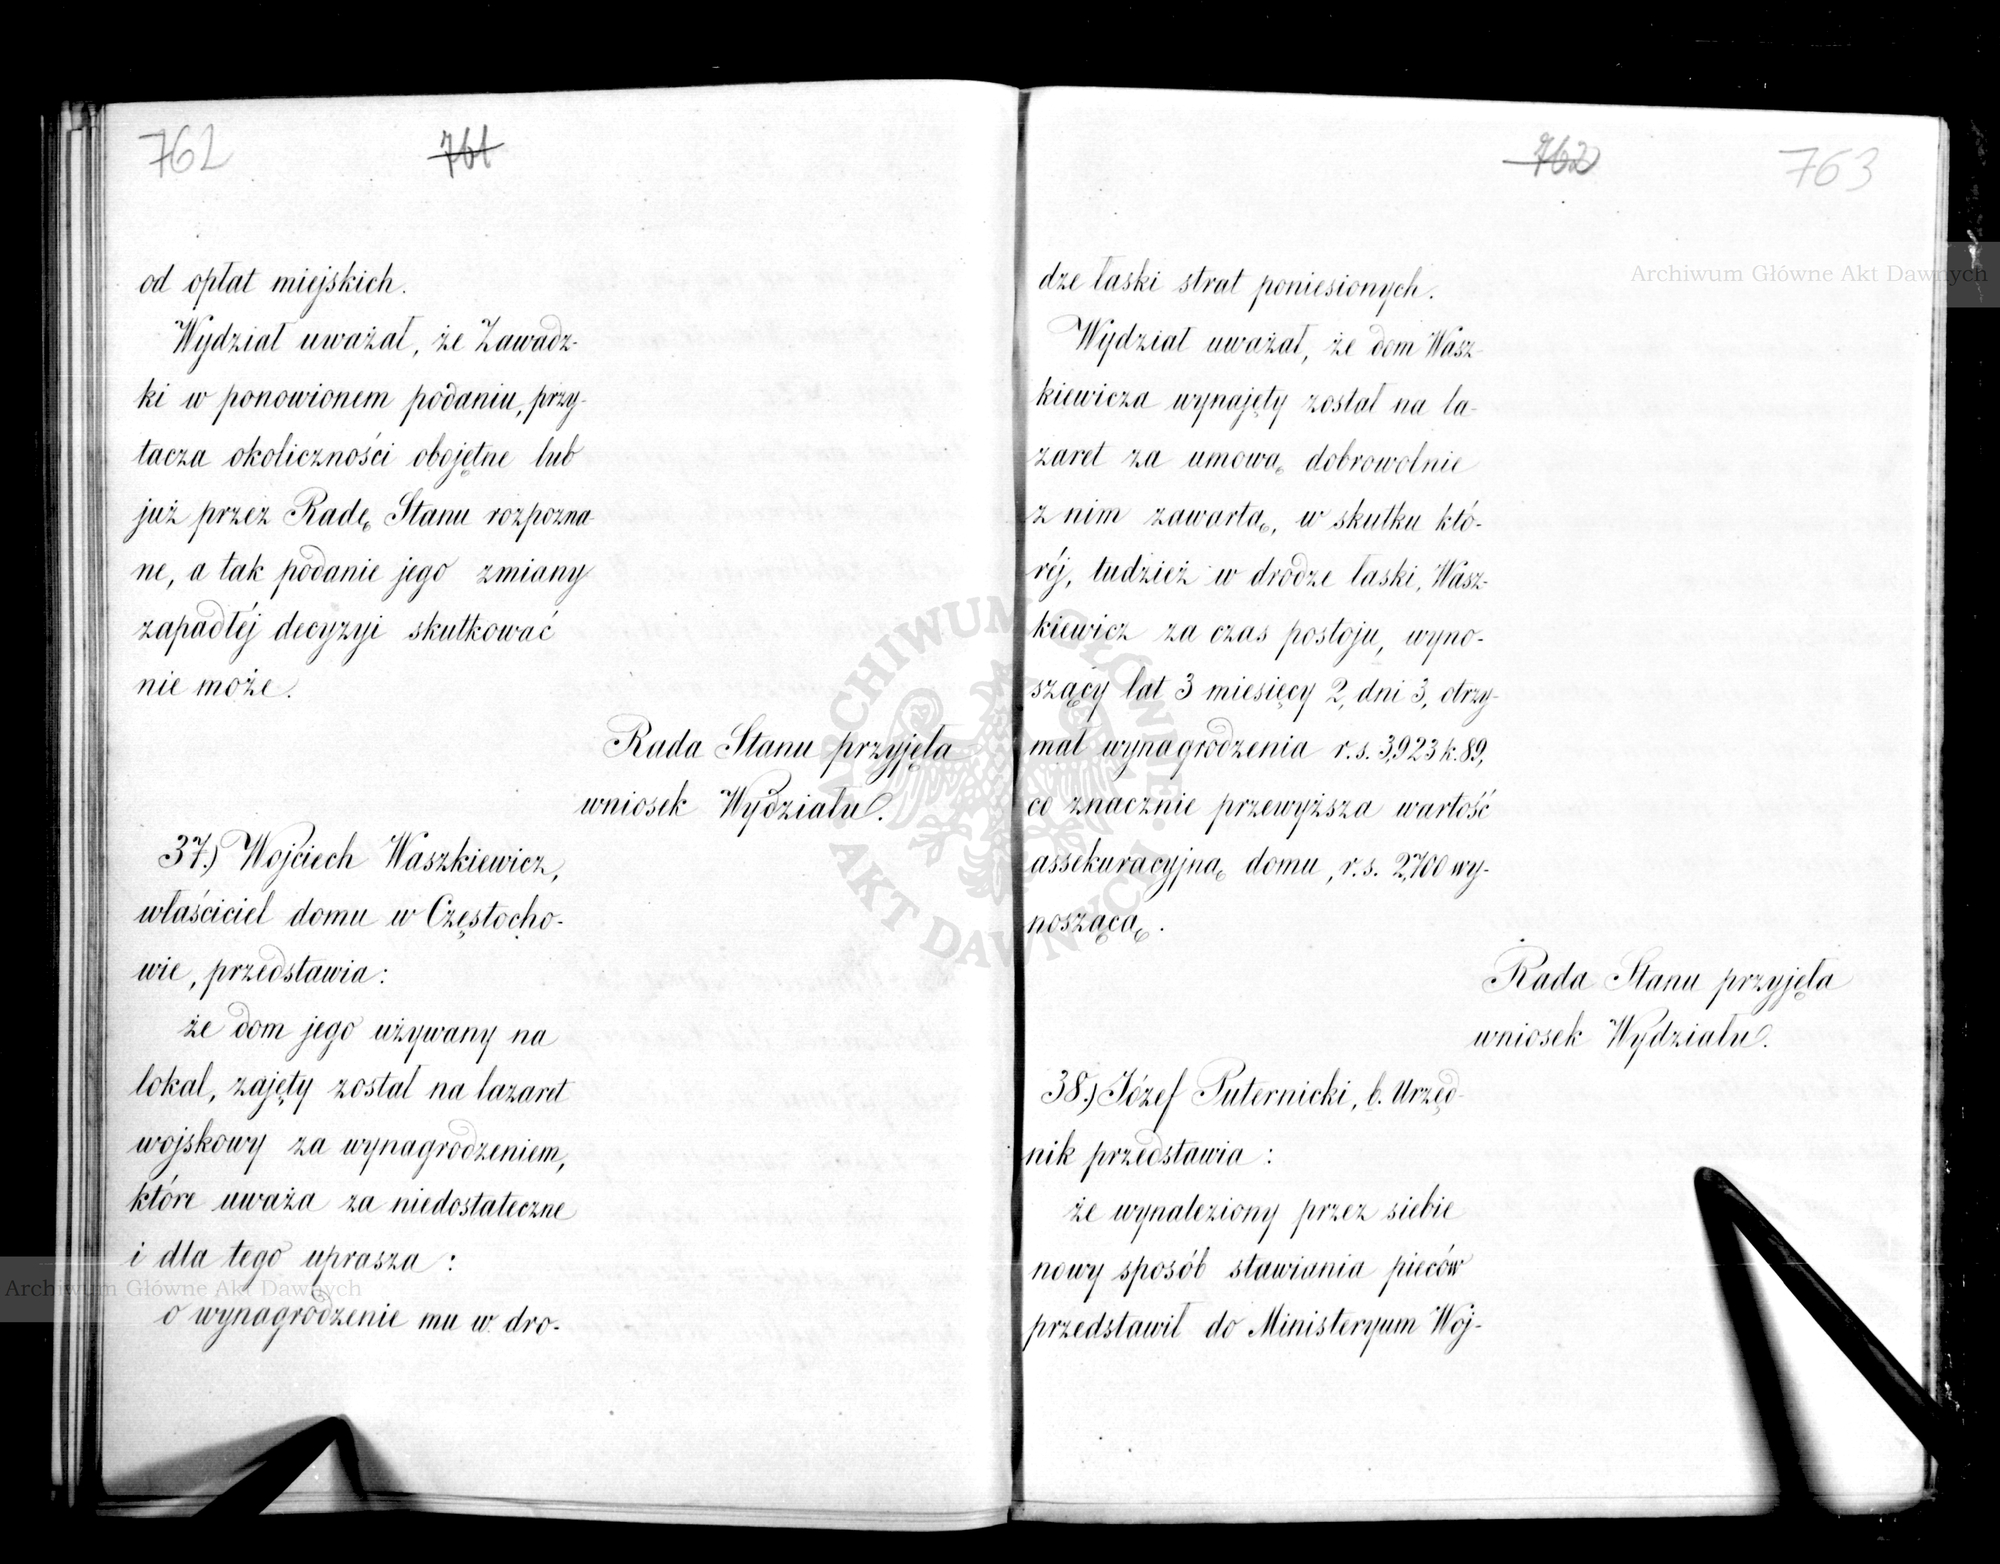 762
761
od opłat miejskich.
Wydział uważał, że Zawadz-
ki w ponowionem podaniu, przy-
tacza okoliczności obojętne lub
już przez Radę Stanu rozpozna-
ne, a tak podanie jego zmiany
zapadłéj decyzyi skutkować
nie może.
Rada Stanu przyjęła
wniosek Wydziału.
37.) Wojciech Waszkiewicz,
właściciel domu w Częstocho-
wie, przedstawia:
że dom jego używany na
lokal, zajęty został na lazaret
wojskowy za wynagrodzeniem,
które uważa za niedostateczne
i dla tego uprasza:
o wynagrodzenie mu w dro-
762
763
dze łaski strat poniesionych.
Wydział uważał, że dom Wasz-
kiewicza wynajęty został na la-
zaret za umową dobrowolnie
z nim zawartą, w skutku któ-
réj, tudzież w drodze łaski, Wasz-
kiewicz za czas postoju, wyno-
szący lat 3 miesięcy 2, dni 3, otrzy-
mał wynagrodzenia r.s. 3,923 k. 89,
co znacznie przewyższa wartość
assekuracyjną domu, r.s. 2,700 wy-
noszącą.
Rada Stanu przyjęła
wniosek Wydziału.
38.) Józef Puternicki, b. Urzęd-
nik przedstawia:
że wynaleziony przez siebie
nowy sposób stawiania pieców
przedstawił do Ministeryum Woj-
Archiwum Główne Akt Dawnych
Archiwum Główne Akt Dawnych
ARCHIWUM GŁÓWNE AKT DAWNYCH W WARSZAWIE